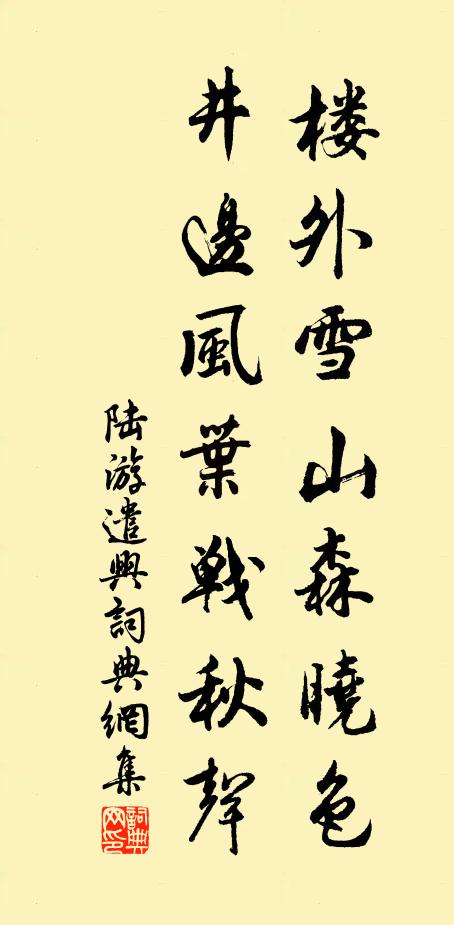 楼外雪山森曉色
井邊風葉戰秋聲
陆游遣興詞典網集
詞典网印